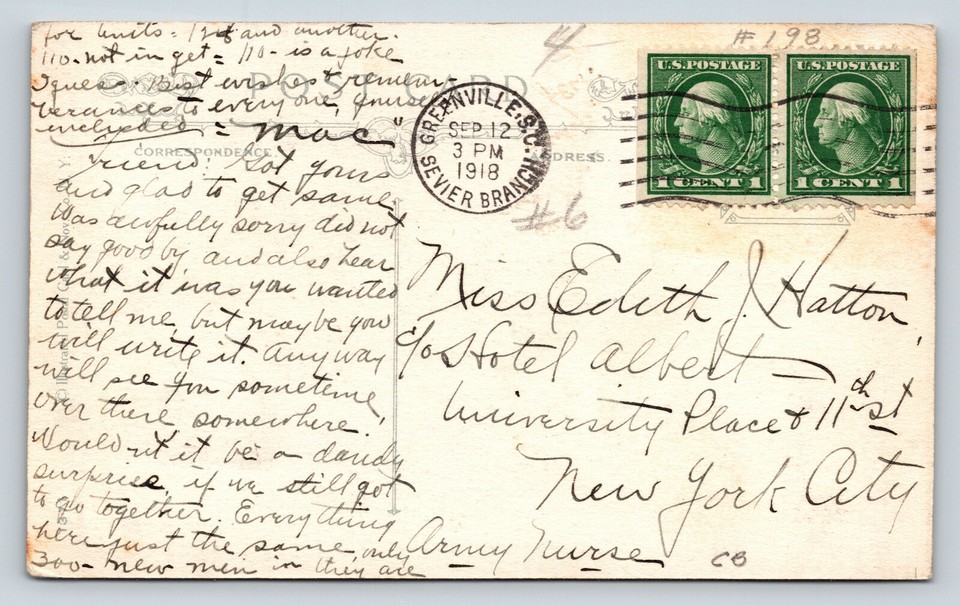 for units = 124 and another.
110 - not in yet = 110 - is a joke
I guess. Best wishes + remem-
berances to every one, yourself
included = "Mac"
POST CARD
CORRESPONDENCE.
ADDRESS.
Friend: Got yours
and glad to get same,
Was awfully sorry did not
say good by and also hear
what it was you wanted
to tell me, but maybe you
will write it. Anyway
will see you sometime
over there somewhere!
Would n't it be a dandy
surprise, if we still got
to go together. Everything
here just the same, only
300 - new men in they are
4
# 198
U.S. POSTAGE
1 CENT 1
U.S. POSTAGE
1 CENT 1
GREENVILLE, S.C.
SEP 12
3 PM
1918
SEVIER BRANCH
#6
Miss Edith J. Hatton,
c/o Hotel Albert —
University Place & 11th St
New York City
Army Nurse
CB